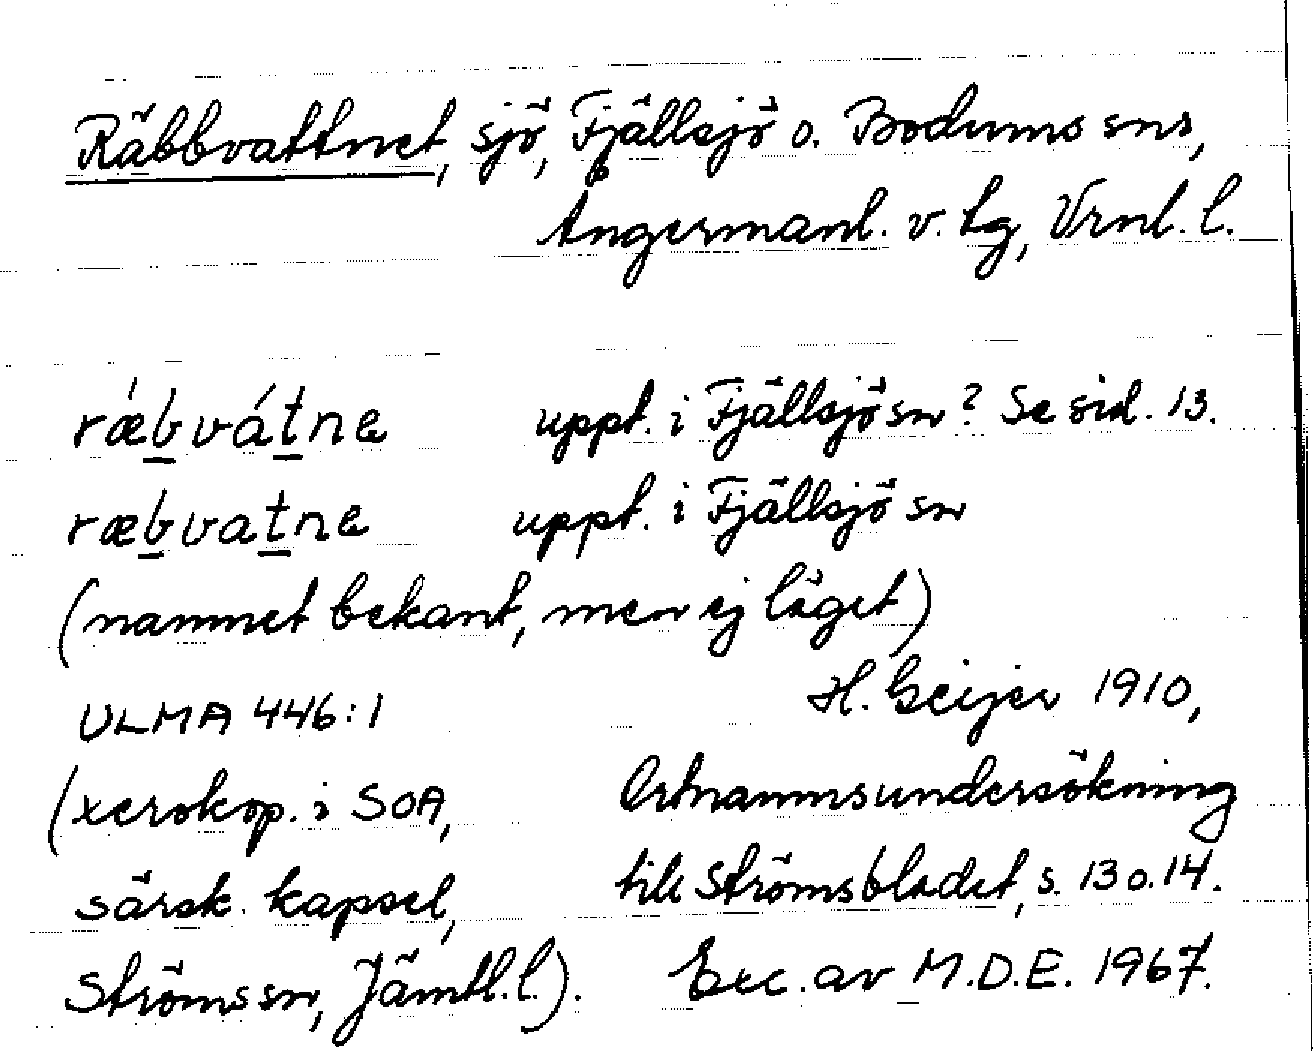 Räbbvattnet, sjö, Fjällsjö o. Bodums sns,
Ångermanl. v. tg, Vrnl. l.
rǽbvátne uppt. i Fjällsjö sn? Se sid. 13.
ræbvatne uppt. i Fjällsjö sn
(namnet bekant, men ej läget)
ULMA 446:1 H. Geijer 1910,
(xerokop. i SOA, Ortnamnsundersökning
särsk. kapsel, till Strömsbladet, s. 13 o. 14.
Ströms sn, Jämtl. l.). Exc. av M.D.E. 1967.